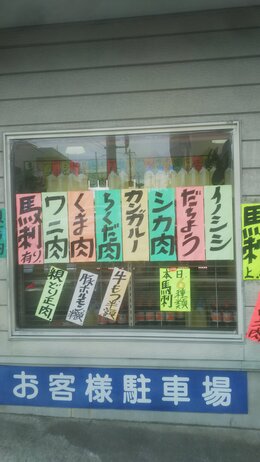 馬刺有り
ワニ肉
くま肉
らくだ肉
カンガルー
シカ肉
だちょう
イノシシ
馬
肉
親どり正肉
豚ホルモン
牛もつ
本日
種類
馬刺
お客様駐車場